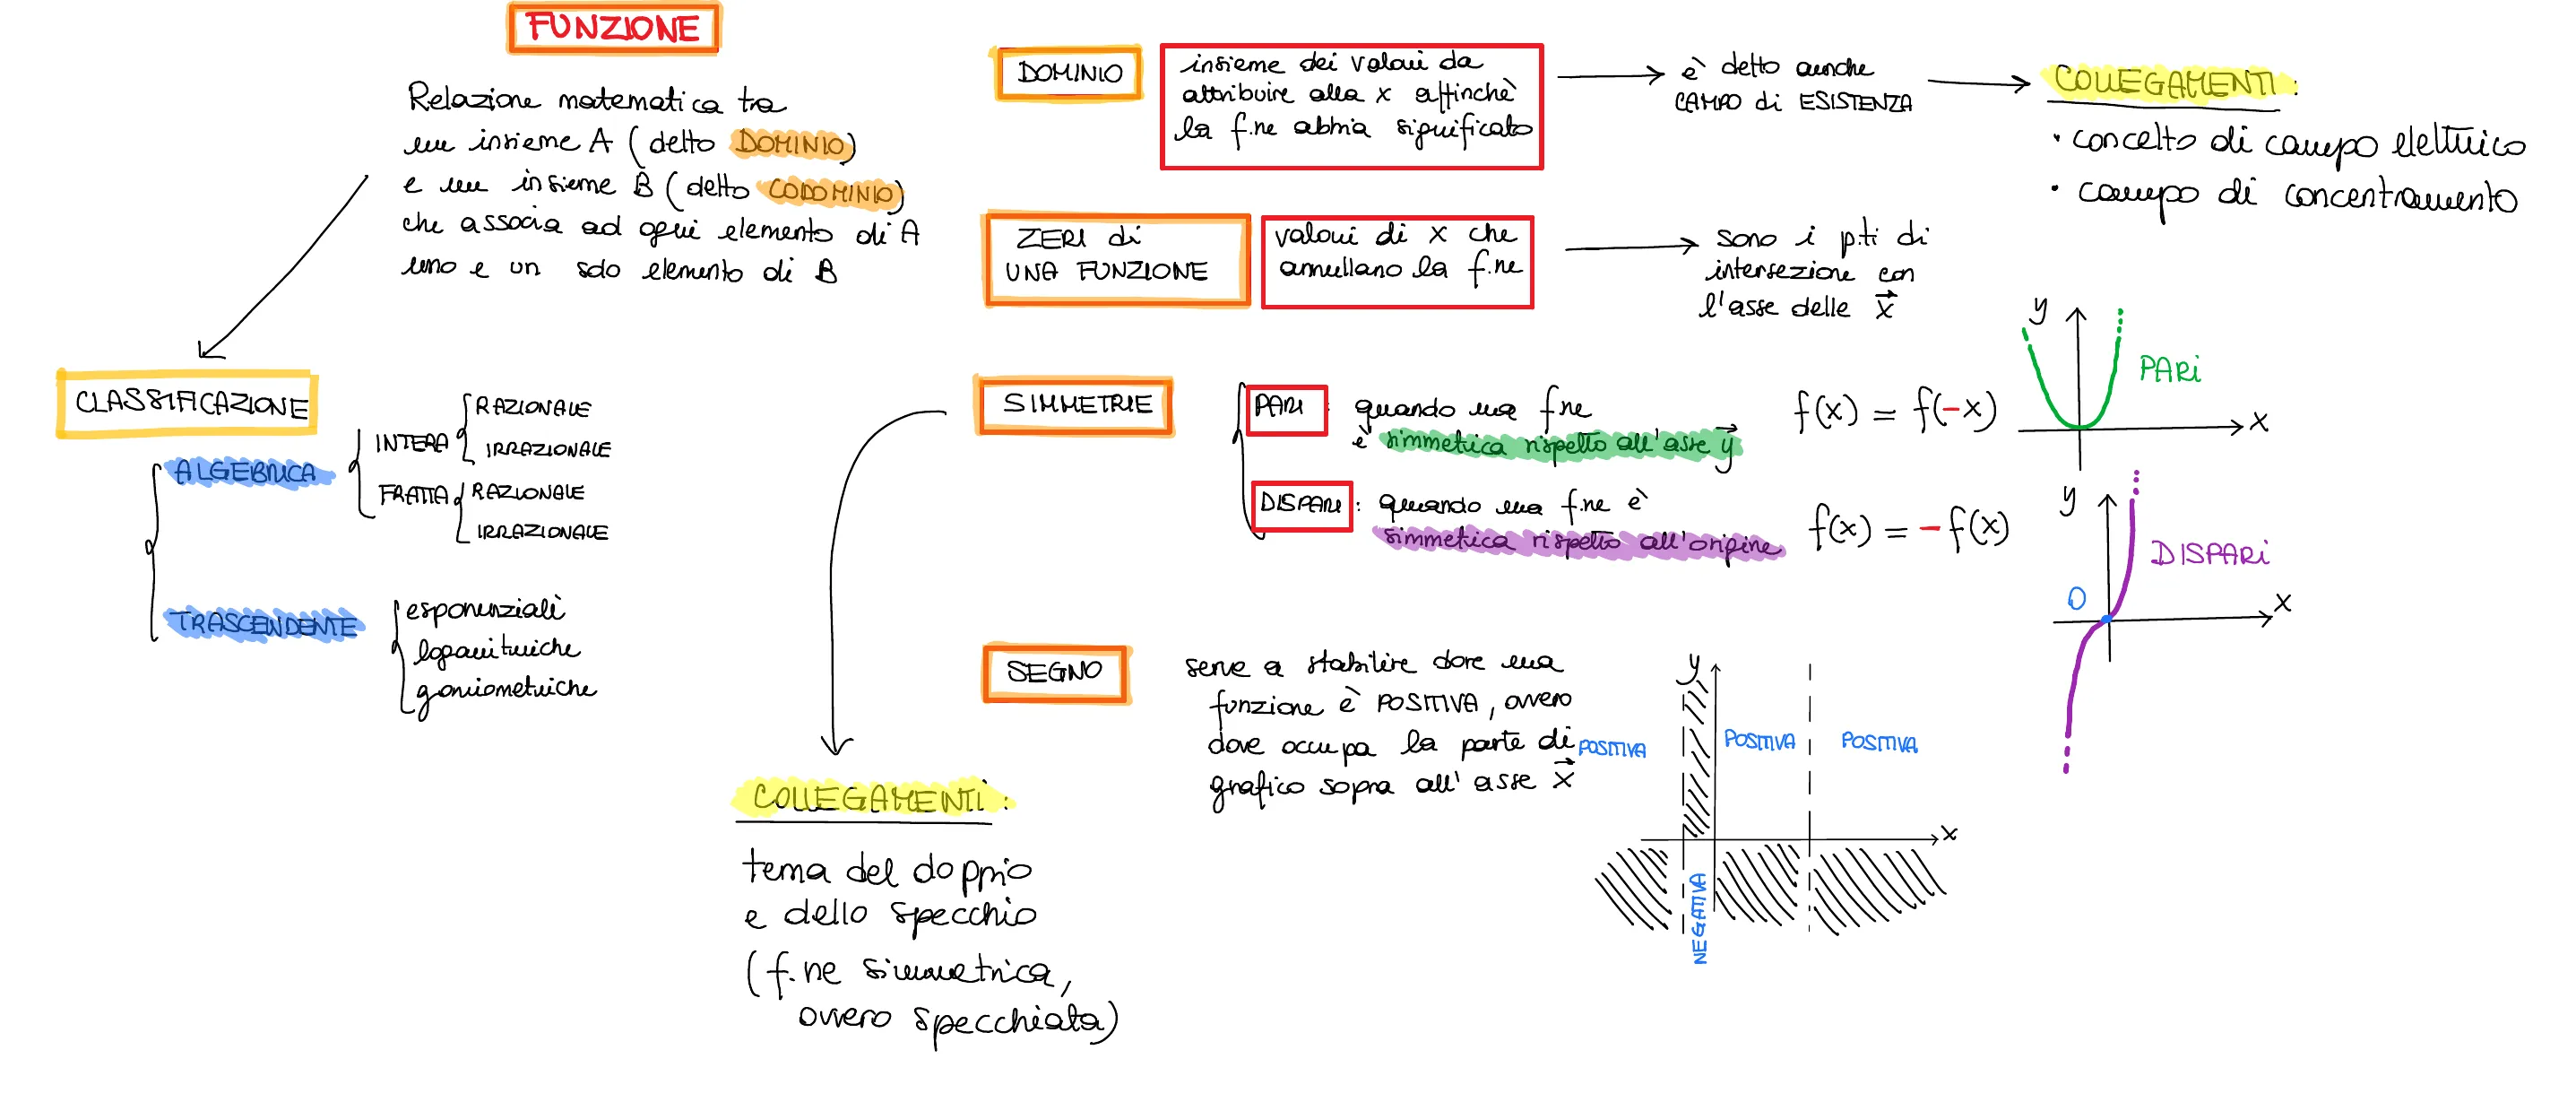 FUNZIONE
Relazione matematica tra
un insieme A (detto DOMINIO)
e un insieme B (detto CODOMINIO)
che associa ad ogni elemento di A
uno e un solo elemento di B
CLASSIFICAZIONE
ALGEBRICA
INTERA
RAZIONALE
IRRAZIONALE
FRATTA
RAZIONALE
IRRAZIONALE
TRASCENDENTE
esponenziali
logaritmiche
goniometriche
DOMINIO
insieme dei valori da
attribuire alla x affinchè
la f.ne abbia significato
è detto anche
CAMPO di ESISTENZA
COLLEGAMENTI:
• concetto di campo elettrico
• campo di concentramento
ZERI di
UNA FUNZIONE
valori di x che
annullano la f.ne
sono i p.ti di
intersezione con
l'asse delle x⃗
SIMMETRIE
PARI: quando una f.ne
è simmetrica rispetto all'asse y⃗
f(x) = f(-x)
y
PARI
x
DISPARI: quando una f.ne è
simmetrica rispetto all'origine
f(x) = - f(x)
y
DISPARI
O
x
COLLEGAMENTI:
tema del doppio
e dello specchio
(f.ne simmetrica,
ovvero specchiata)
SEGNO
serve a stabilire dove una
funzione è POSITIVA, ovvero
dove occupa la parte di
grafico sopra all'asse x⃗
y
POSITIVA
POSITIVA
POSITIVA
x
NEGATIVA